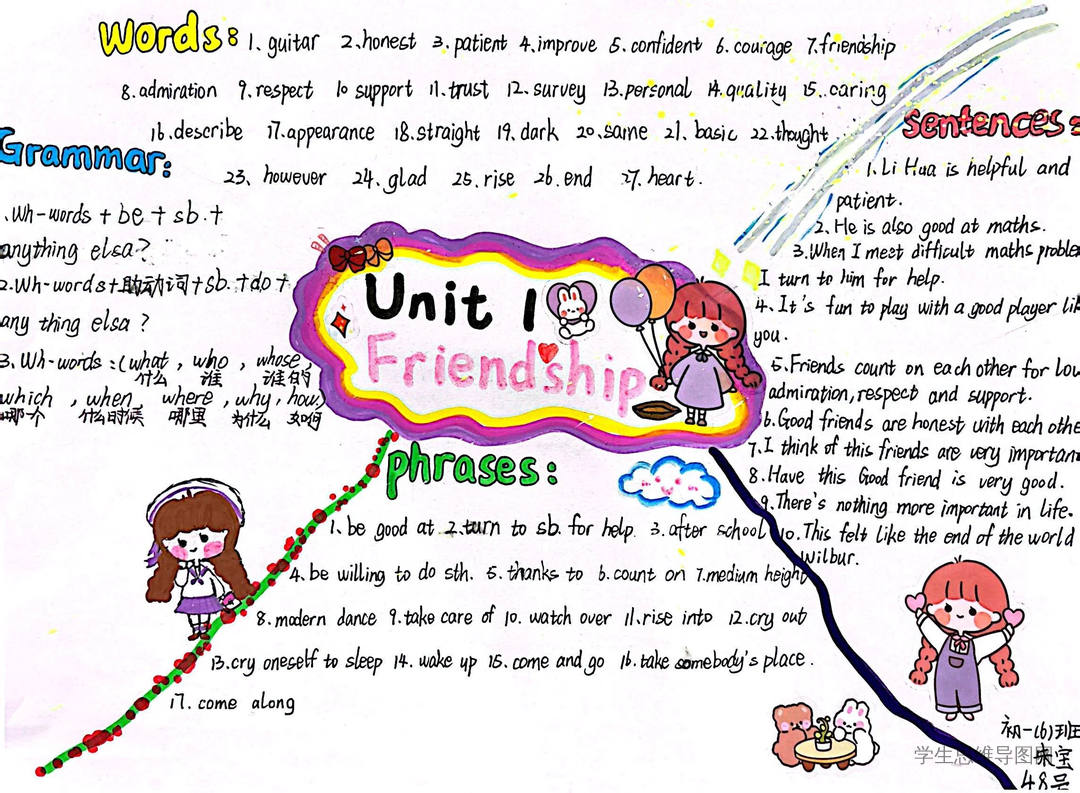 Words: 1、guitar 2、honest 3、patient 4、improve 5、confident 6、courage 7、friendship
8、admiration 9、respect 10 support 11、trust 12、survey 13、personal 14、quality 15、caring
16、describe 17、appearance 18、straight 19、dark 20、same 21、basic 22、thought
23、however 24、glad 25、rise 26、end 27、heart.
Grammar:
、Wh-words + be + sb. +
anything elsa?
2、Wh-words+助动词+sb. +do+
any thing elsa ?
3、Wh-words :(what , who , whose
什么 谁 谁的
which , when , where , why , how)
哪个 什么时候 哪里 为什么 如何
Unit 1
Friendship
sentences:
1、Li Hua is helpful and
patient.
2、He is also good at maths.
3、When I meet difficult maths proble
I turn to him for help.
4、It's fun to play with a good player li
you.
5、Friends count on each other for lo
admiration, respect and support.
6、Good friends are honest with each othe
7、I think of this friends are very importan
8、Have this Good friend is very good.
9、There's nothing more important in life.
10、This felt like the end of the world
Wilbur.
phrases:
1、be good at 2、turn to sb. for help. 3、after school
4、be willing to do sth. 5、thanks to 6、count on 7、medium height
8、modern dance 9、take care of 10、watch over 11、rise into 12、cry out
13、cry oneself to sleep 14、wake up 15、come and go 16、take somebody's place.
17、come along
初一(6)班
宝
48号
学生思维导图